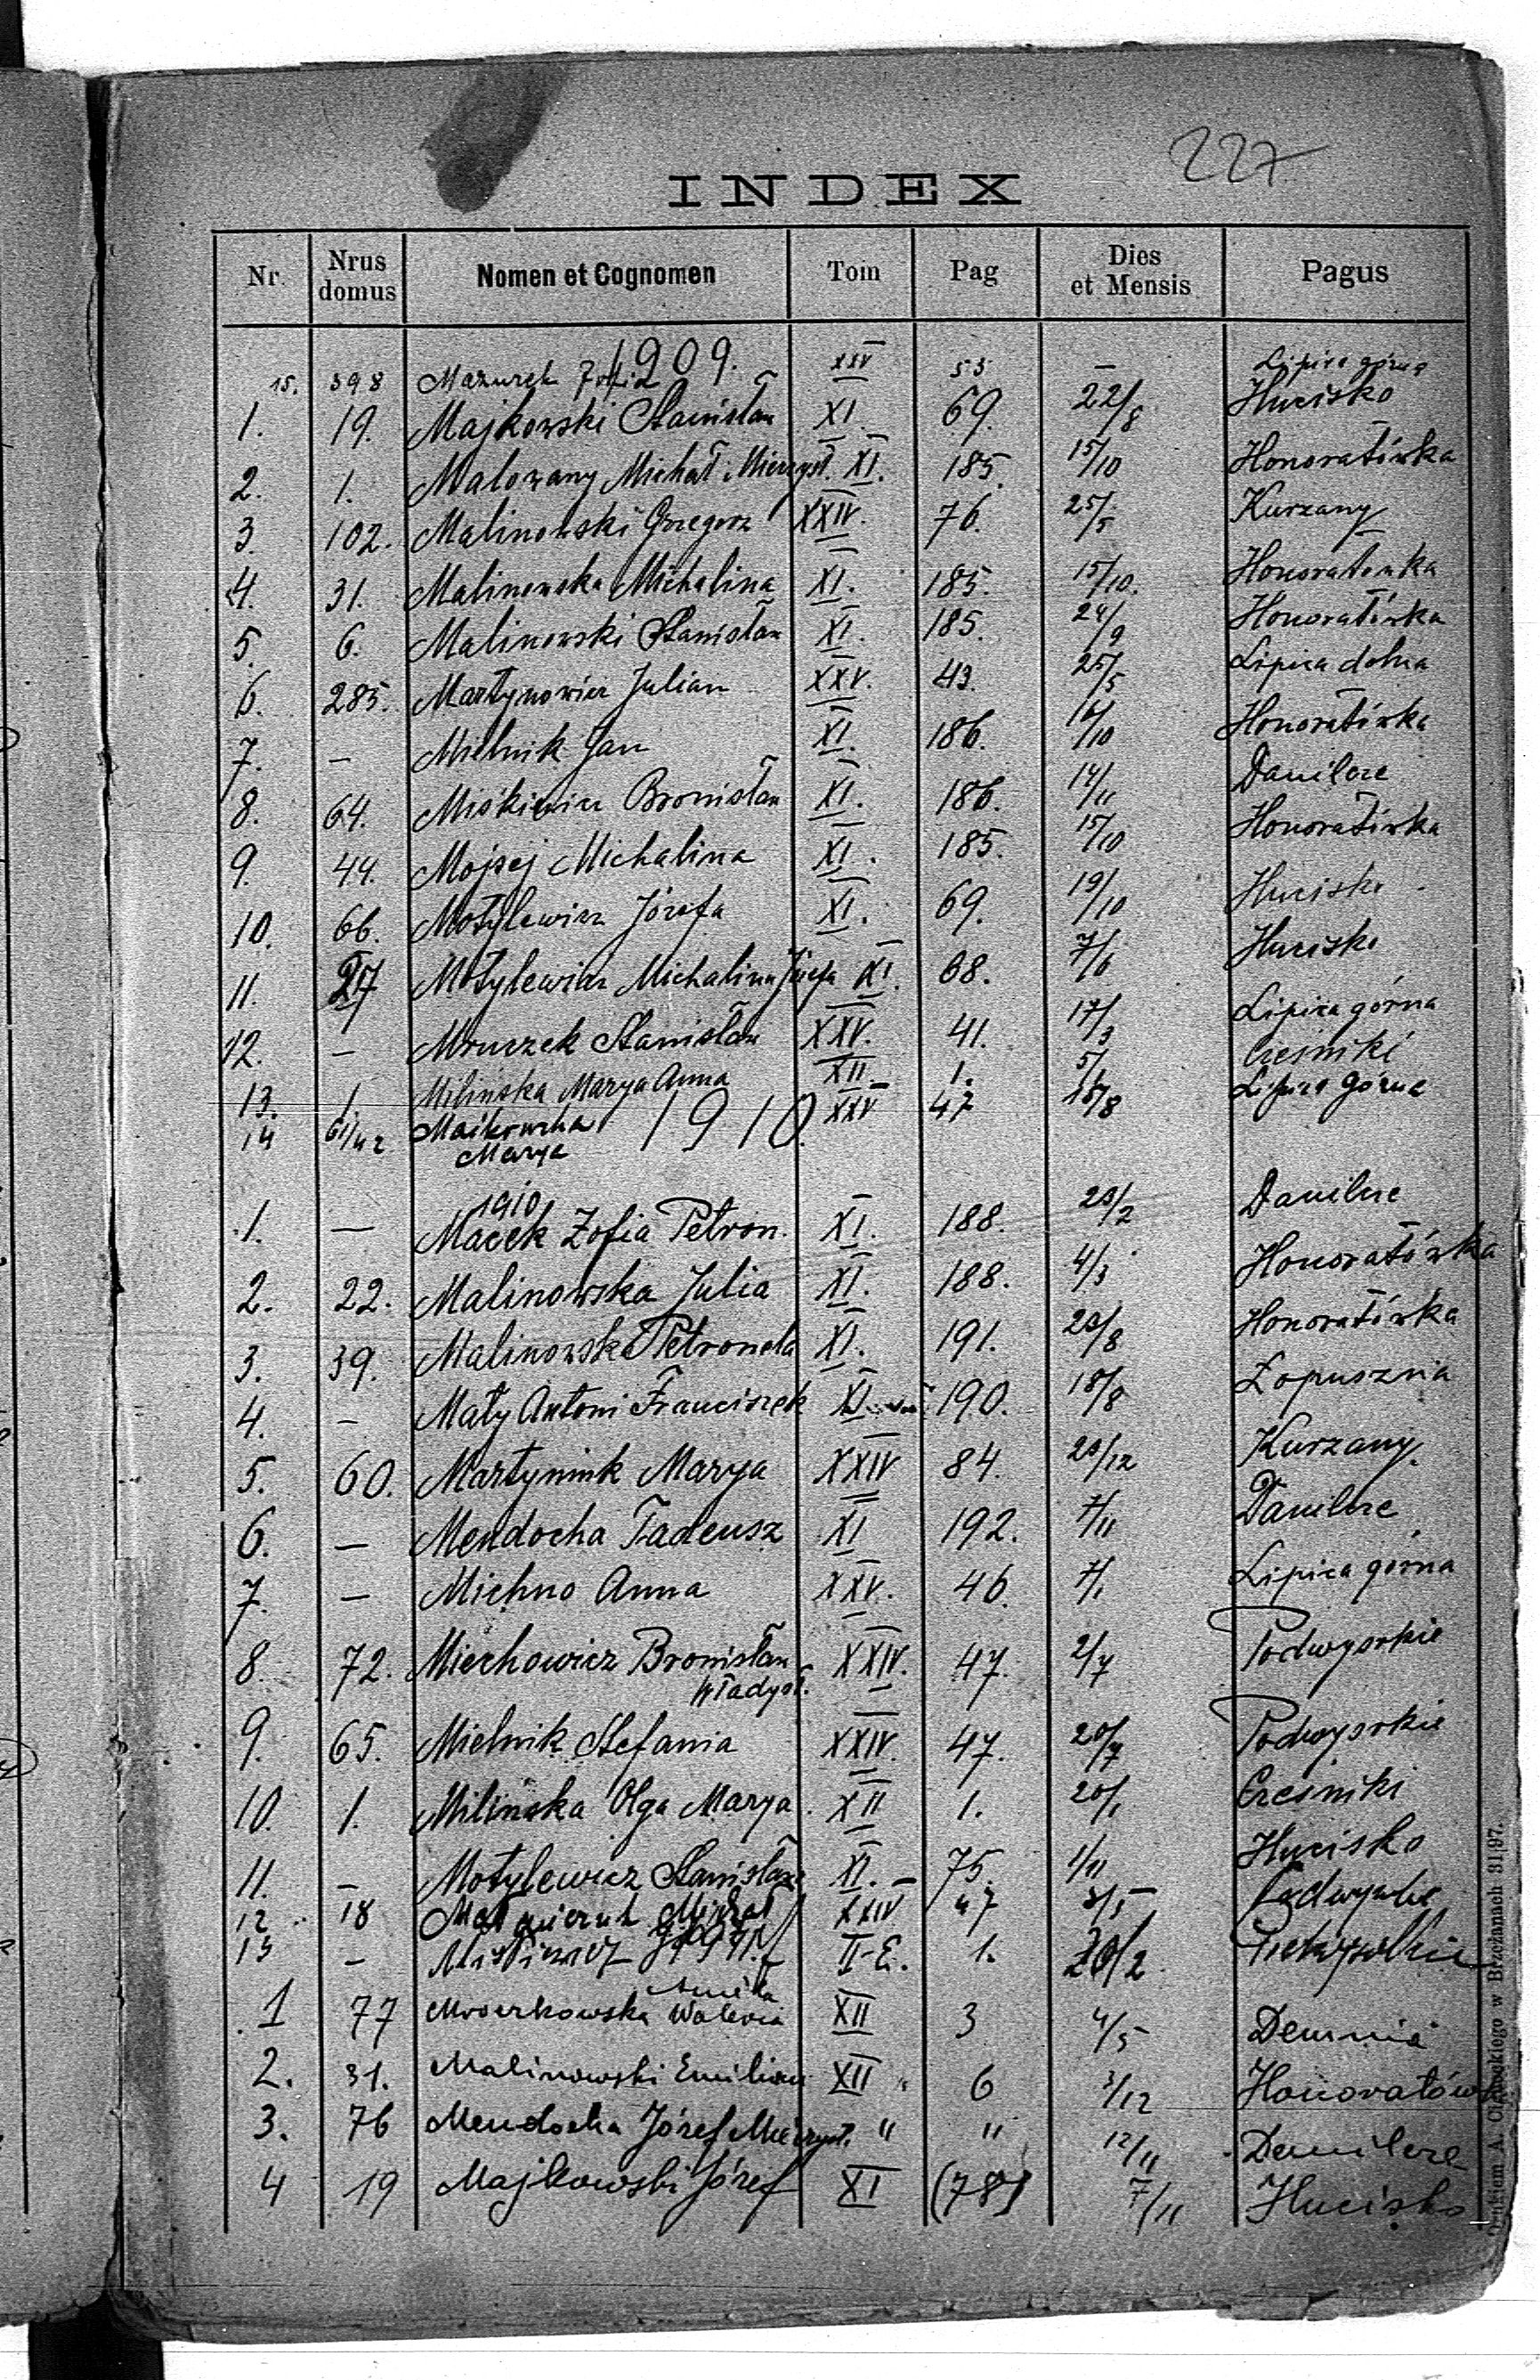 227
INDEX
Nr. Nrus domus Nomen et Cognomen Tom Pag Dies et Mensis Pagus
1909.
15. 398 Mazurek Zofia XXV 53 — Lipica górna
1. 19. Majkowski Stanisław XI. 69. 22/8 Hucisko
2. 1. Malowany Michał Mieczysł. XI. 185. 15/10 Honoratówka
3. 102. Malinowski Grzegorz XXIV. 76. 25/5 Kurzany
4. 31. Malinowska Michalina XI. 185. 15/10. Honoratówka
5. 6. Malinowski Stanisław XI. 185. 24/9 Honoratówka
6. 285. Martynowicz Julian XXV. 43. 25/5 Lipica dolna
7. — Mielnik Jan XI. 186. /10 Honoratówka
8. 64. Miśkiewicz Bronisław XI. 186. 14/11 Danilcze
9. 44. Mojsej Michalina XI. 185. 15/10 Honoratówka
10. 66. Motylewicz Józefa XI. 69. 19/10 Hucisko
11. Motylewicz Michalina Józefa XI. 68. 7/6 Hucisko
12. — Mruczek Stanisław XXV. 41. 17/3 Lipica górna
13. 1 Milińska Marya Anna XII 1. 5/1 Cześniki
14 61/42 Majkowska Marya XXV 47 15/8 Lipica Górna
1910.
1910
1. — Macek Zofia Petron. XI. 188. 23/2 Danilcze
2. 22. Malinowska Julia XI. 188. 4/3 Honoratówka
3. 39. Malinowska Petronela XI. 191. 23/8 Honoratówka
4. — Mały Antoni Franciszek XI. 190. 18/8 Łopusznia
5. 60. Martyniuk Marya XXIV 84. 23/12 Kurzany
6. — Mendocha Tadeusz XI 192. 7/11 Danilcze
7. — Michno Anna XXV. 46. 7/1 Lipica górna
8. 72. Miechowicz Bronisław XXIV. 47. 2/7 Podwysokie
Władysł.
9. 65. Mielnik Stefania XXIV. 47. 20/7 Podwysokie
10. 1. Milińska Olga Marya. XII 1. 20/1 Cześniki
11. — Motylewicz Stanisław XI. 75. 1/11 Hucisko
12 18 Michał XXIV 47 3/5
13 — II-E. 1. 20/2
Aniela
1 77 Mroczkowska Waleria XII 3 4/5 Demnia
2. 31. Malinowski Emilian XII 6 3/12 Honoratów
3. 76 Mendocha Józef Mieczysł. " " 12/11 Danilcze
4 19 Majkowski Józef XI (78) 7/11 Hucisko
Drukiem A. w Brzeżanach 31|97.